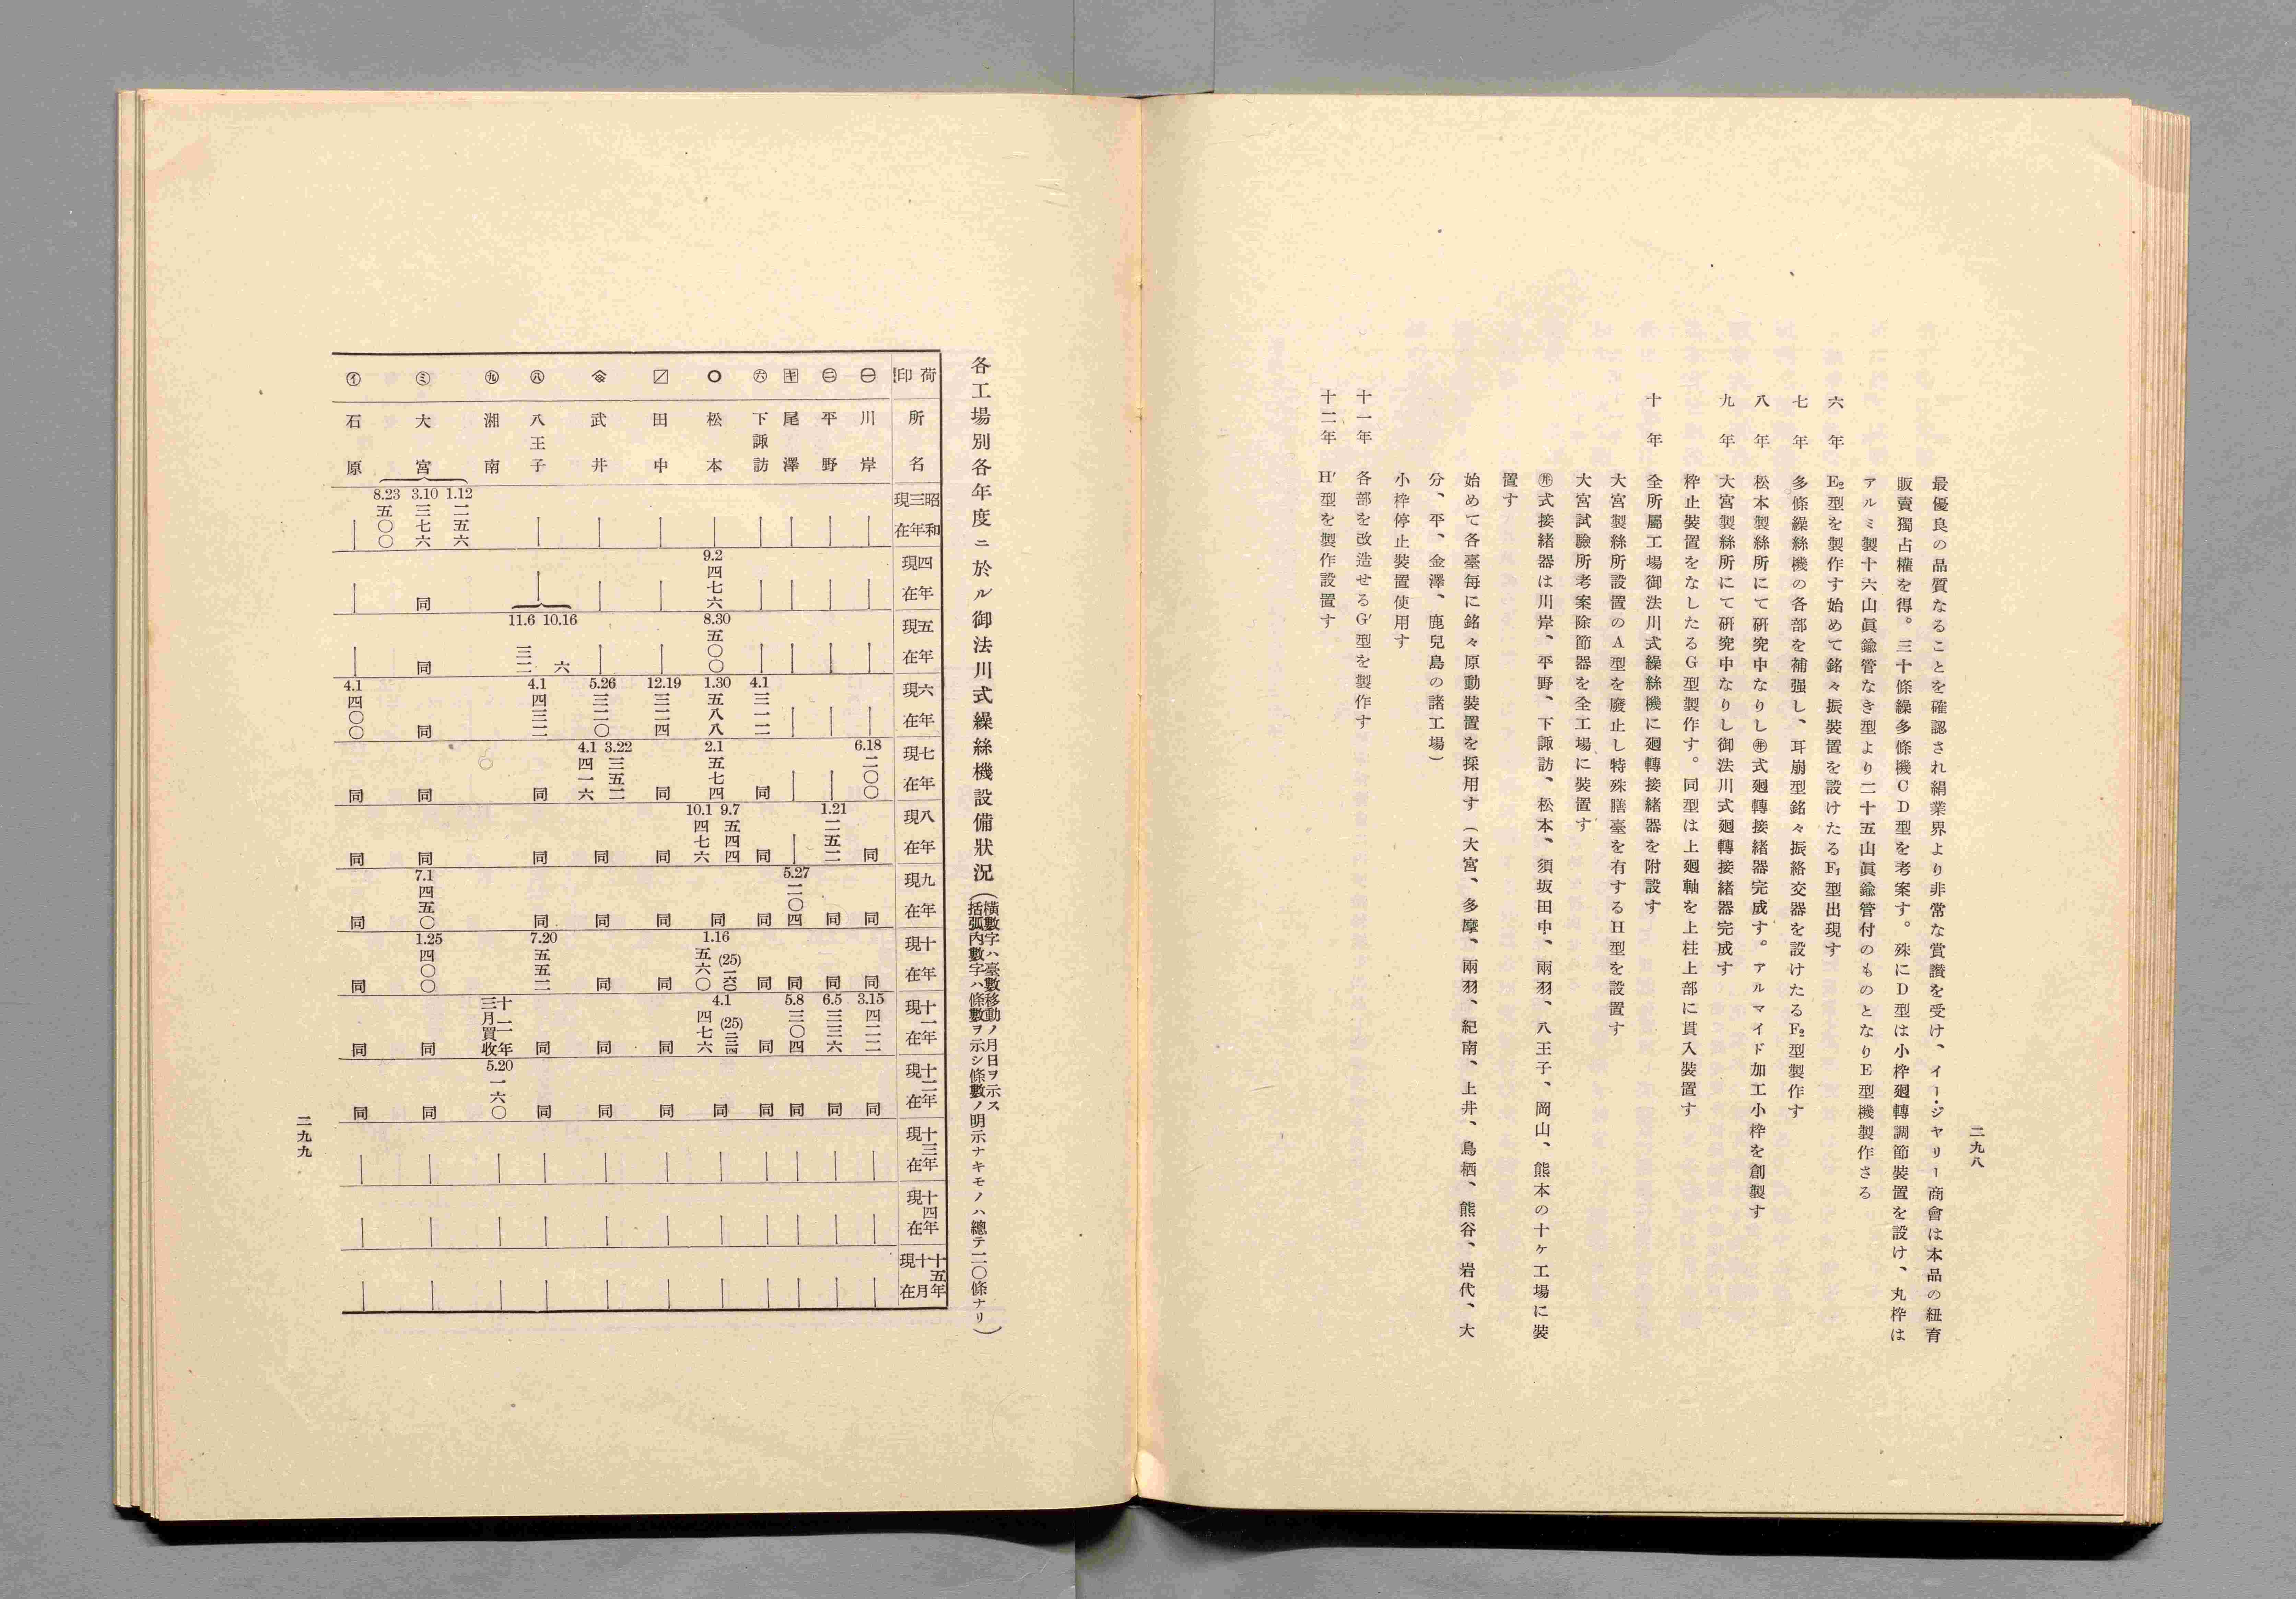 二九八
最優良の品質なることを確認され絹業界より非常な賞讃を受け、イー・ジャリー商會は本品の紐育
販賣獨占權を得。三十條繰多條機CD型を考案す。殊にD型は小枠廻轉調節裝置を設け、丸枠は
アルミ製十六山眞鍮管なき型より二十五山眞鍮管付のものとなりE型機製作さる
六年 E₂型を製作す始めて銘々振裝置を設けたるF₁型出現す
七年 多條繰絲機の各部を補强し、耳崩型銘々振絡交器を設けたるF₂型製作す
八年 松本製絲所にて硏究中なりし㊥式廻轉接緒器完成す。アルマイド加工小枠を創製す
九年 大宮製絲所にて硏究中なりし御法川式廻轉接緒器完成す
枠止裝置をなしたるG型製作す。同型は上廻軸を上柱上部に貫入裝置す
十年 全所屬工場御法川式繰絲機に廻轉接緒器を附設す
大宮製絲所設置のA型を廢止し特殊膳臺を有するH型を設置す
大宮試驗所考案除節器を全工場に裝置す
式接緒器は川岸、平野、下諏訪、松本、須坂田中、兩羽、八王子、岡山、熊本の十ケ工場に裝
置す
始めて各臺每に銘々原動裝置を採用す(大宮、多摩、兩羽、紀南、上井、鳥栖、熊谷、岩代、大
分、平、金澤、鹿兒島の諸工場)
小枠停止裝置使用す
十一年 各部を改造せるG′型を製作す
十二年 H′型を製作設置す
各工場別各年度ニ於ル御法川式繰絲機設備狀況
(橫數字ハ臺數移動ノ月日ヲ示ス
括弧內數字ハ條數ヲ示シ條數ノ明示ナキモノハ總テ二〇條ナリ)
荷印 所名 昭和三年現在 四年現在 五年現在 六年現在 七年現在 八年現在 九年現在 十年現在 十一年現在 十二年現在 十三年現在 十四年現在 十五年十月現在
㊀ 川岸 | | | | 6.18 二〇〇 同 同 同 3.15 四二二 同 | | |
㊁ 平野 | | | | | 1.21 二五二 同 同 6.5 三三六 同 | | |
キ 尾澤 | | | | | | 5.27 二〇四 同 5.8 三〇四 同 | | |
㊅ 下諏訪 | | | 4.1 三一二 同 同 同 同 同 同 | | |
〇 松本 9.2 四七六 8.30 五〇〇 1.30 五八八 2.1 五七四 9.7 五四四 10.1 四七六 同 1.16 (25)一六〇 五六〇 4.1 (25)二三四 四七六 同 | | |
田中 | | | 12.19 三二四 同 同 同 同 同 同 | | |
武井 | | | 5.26 三二〇 3.22 三五二 4.1 四一六 同 同 同 同 同 | | |
㊇ 八王子 | | 10.16 六 11.6 三二 4.1 四三二 同 同 同 7.20 五五二 同 同 | | |
㊈ 湘南 十二年三月買收 5.20 一六〇 | | |
㋯ 大宮 1.12 二五六 3.10 三七六 8.23 五〇〇 同 同 同 同 同 7.1 四五〇 1.25 四〇〇 同 同 | | |
㋑ 石原 | | | 4.1 四〇〇 同 同 同 同 同 同 | | |
二九九